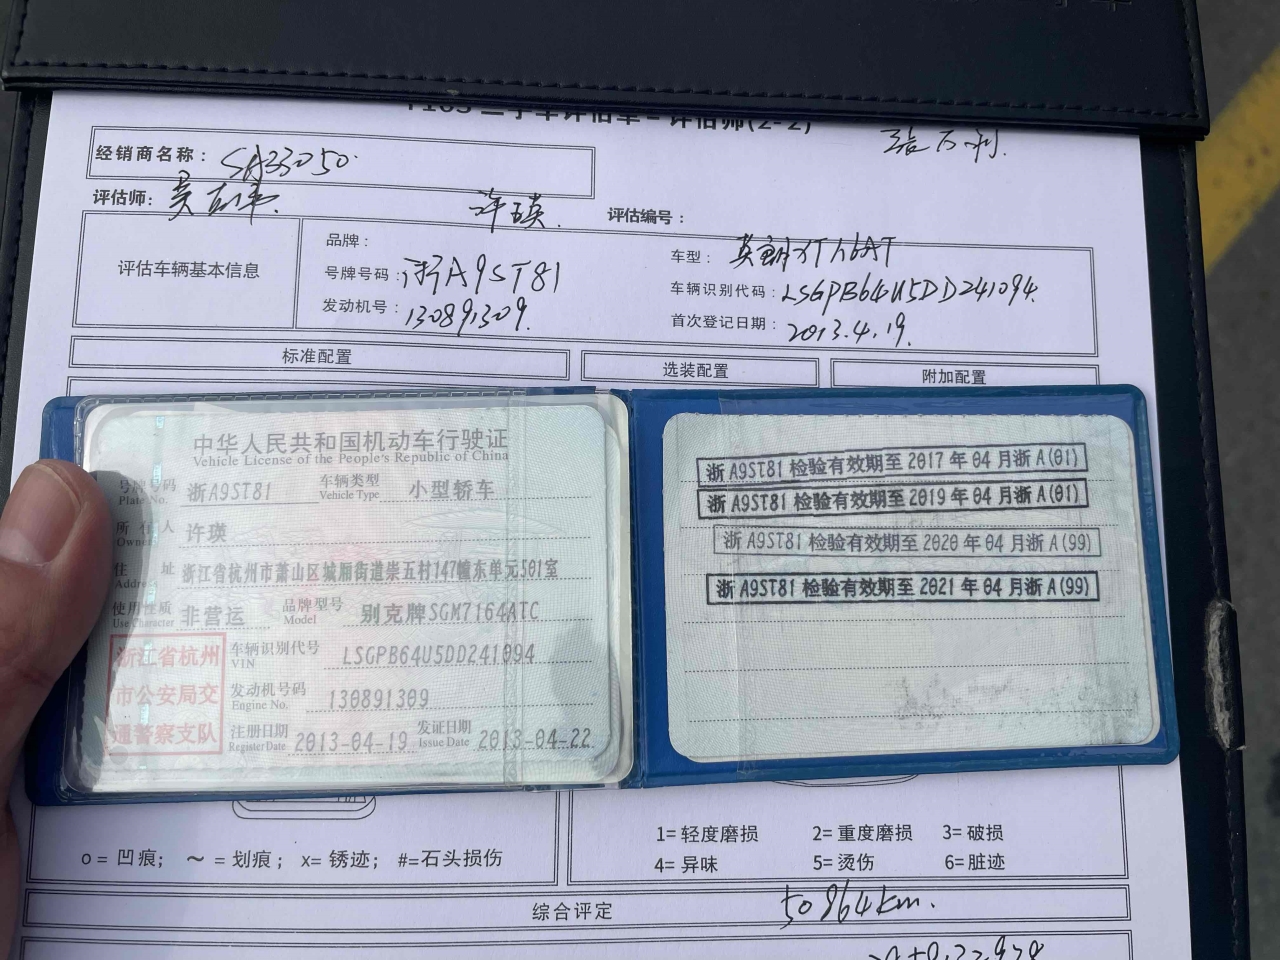 二手车评估单 - 评估师(2-2)
经销商名称: SA33050
评估师:
许瑛
评估编号:
评估车辆基本信息
品牌:
车型: 英朗XT1.6AT
号牌号码: 浙A9ST81
车辆识别代码: LSGPB64U5DD241094
发动机号: 130891309
首次登记日期: 2013.4.19
标准配置
选装配置
附加配置
中华人民共和国机动车行驶证
Vehicle License of the People's Republic of China
号牌号码 浙A9ST81 车辆类型 小型轿车
Plate No. Vehicle Type
所有人 许瑛
Owner
住址 浙江省杭州市萧山区城厢街道崇五村147幢东单元501室
Address
使用性质 非营运 品牌型号 别克牌SGM7164ATC
Use Character Model
浙江省杭州
市公安局交
通警察支队
车辆识别代号 LSGPB64U5DD241094
VIN
发动机号码 130891309
Engine No.
注册日期 2013-04-19 发证日期 2013-04-22
Register Date Issue Date
浙A9ST81 检验有效期至 2017 年 04 月浙 A(01)
浙 A9ST81 检验有效期至 2019 年 04 月浙 A(01)
浙 A9ST81 检验有效期至 2020 年 04 月浙 A(99)
浙 A9ST81 检验有效期至 2021 年 04 月浙 A(99)
o = 凹痕; ~ = 划痕; x= 锈迹; #=石头损伤
1= 轻度磨损 2= 重度磨损 3= 破损
4= 异味 5= 烫伤 6= 脏迹
综合评定
50864km.